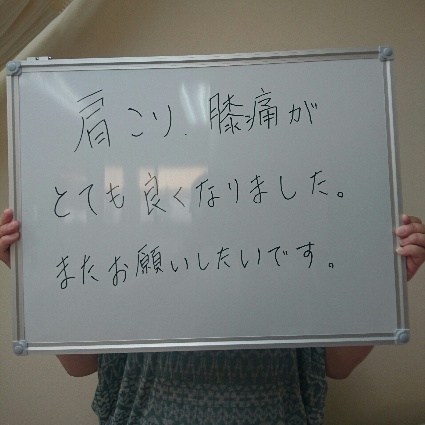 肩こり、膝痛が
とても良くなりました。
またお願いしたいです。